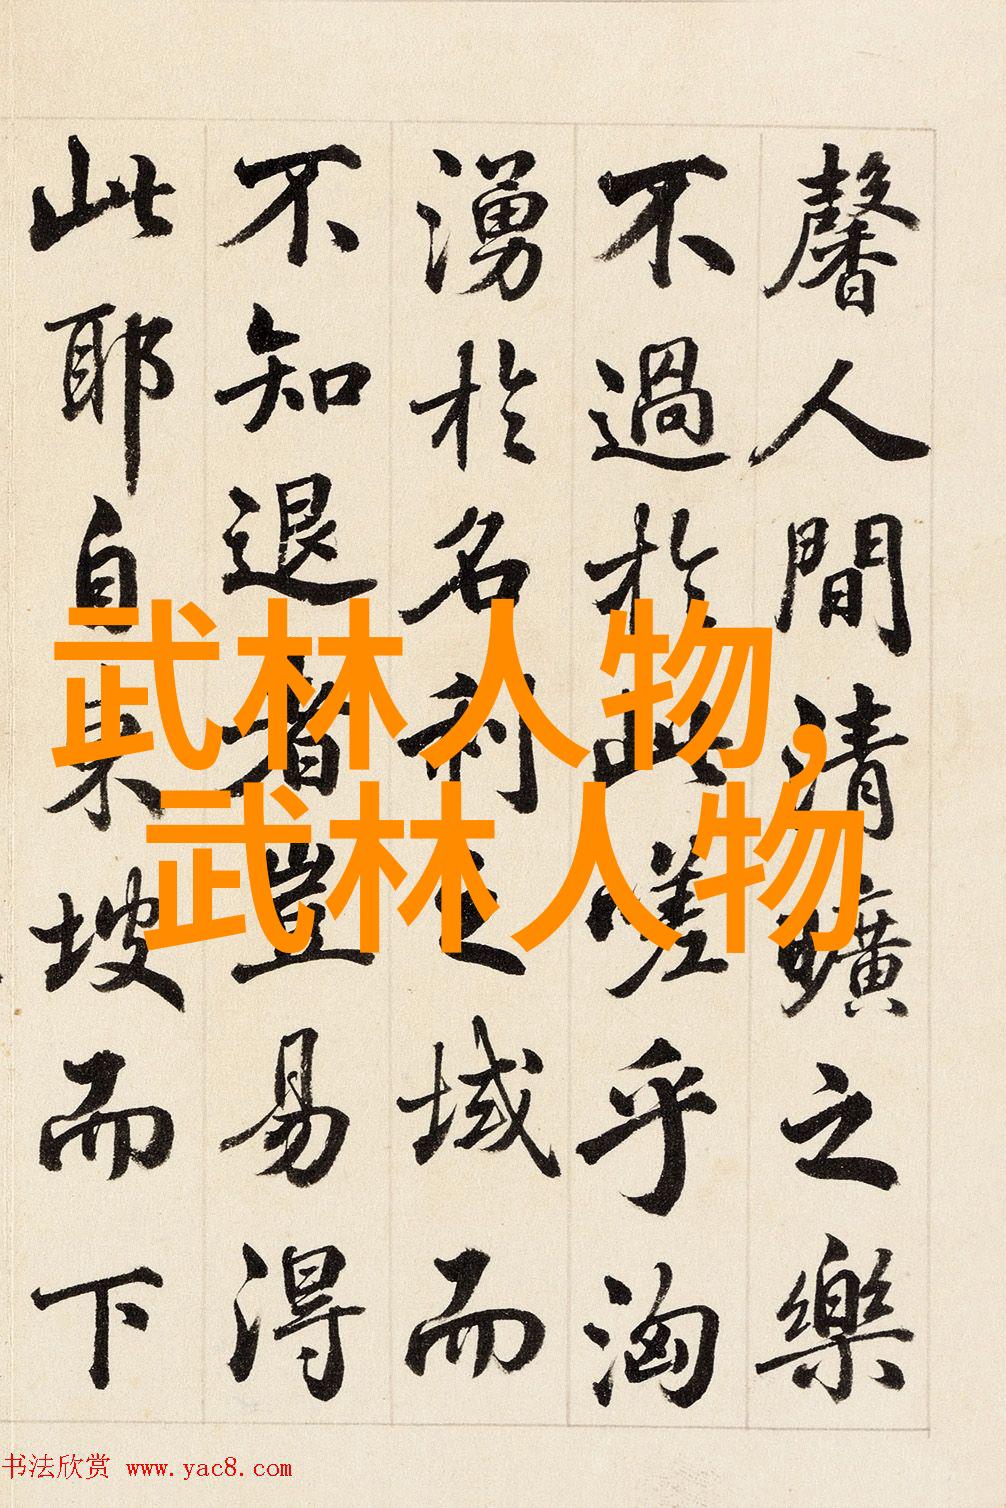 馨人間清曠之樂
不過於此嗟乎洶
湧於名利之域而
不知退者豈易得
此耶自東坡而下
武林人物,
武林人物
书法欣赏 www.yac8.com